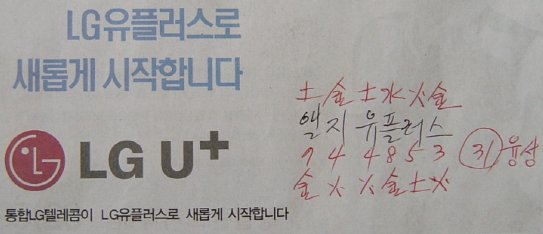 LG유플러스로
새롭게 시작합니다
LG U+
통합LG텔레콤이 LG유플러스로 새롭게 시작합니다
土金土水火金
엘지 유플러스
9 4 4 8 5 3 31 융상
金火火金土火